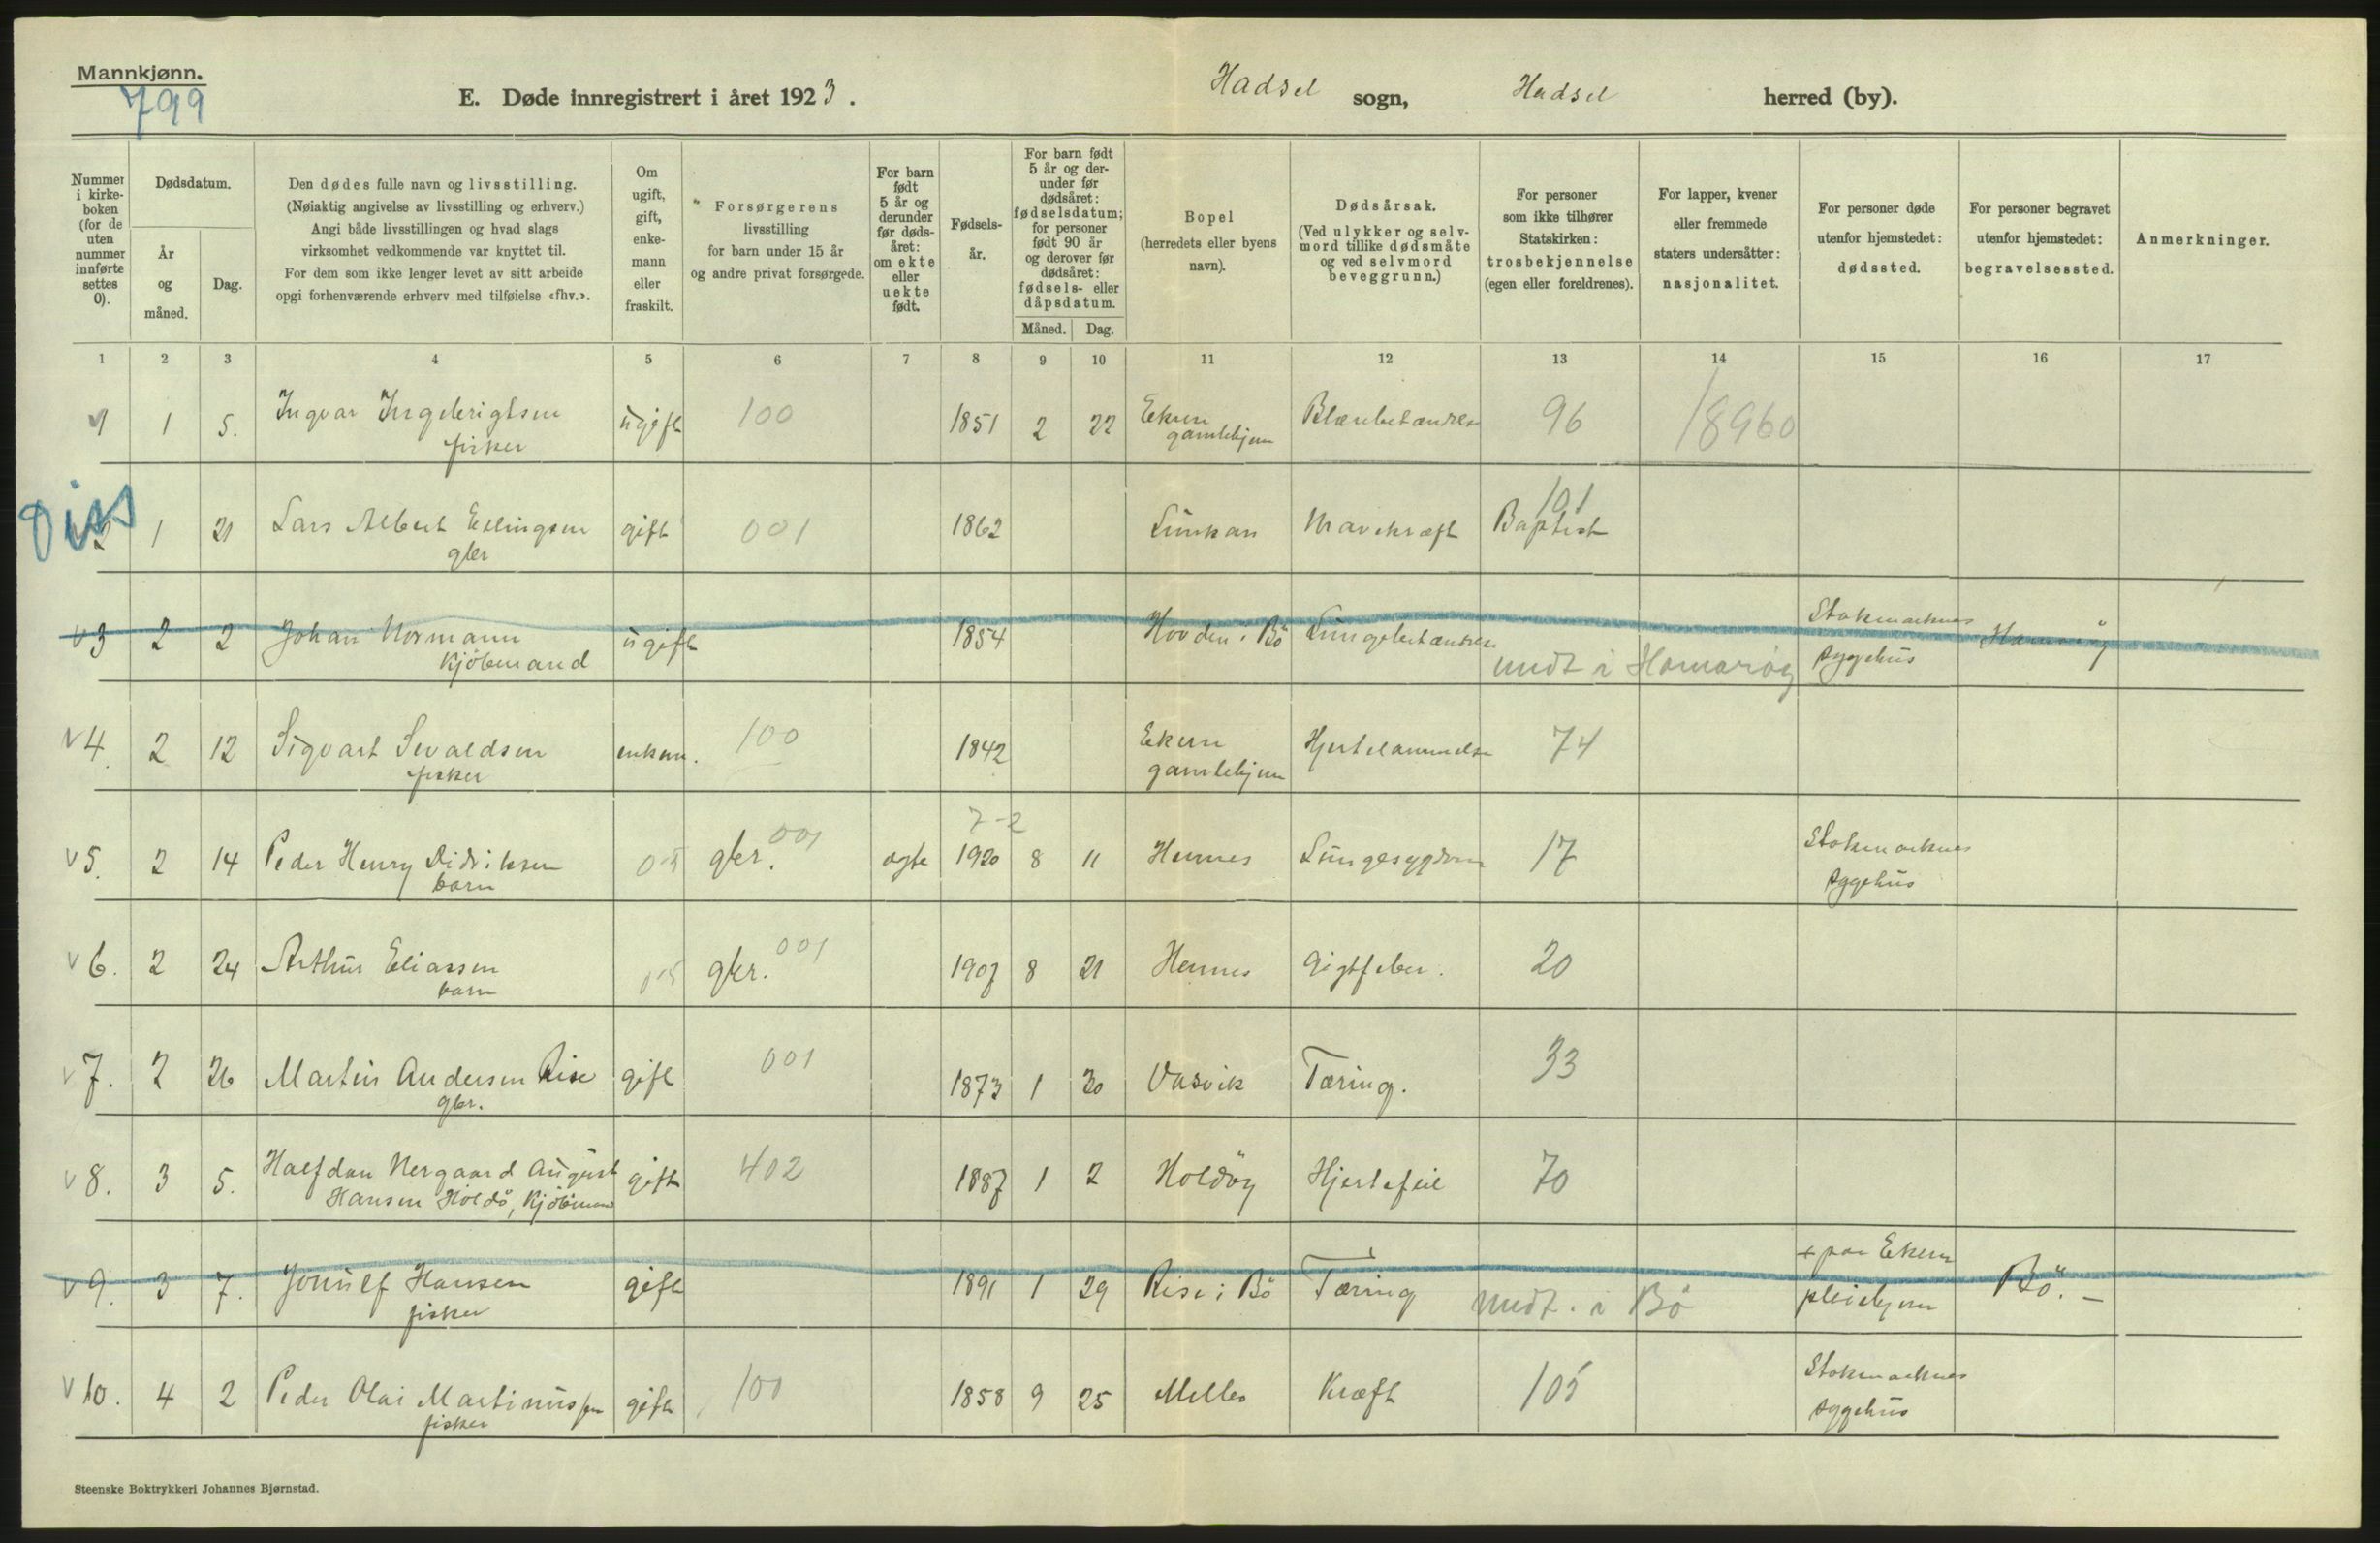 Mannkjønn.
799
E. Døde innregistrert i året 1923.
Hadsel sogn, Hadsel herred (by).
Nummer i kirke-boken (for de uten nummer innførte settes 0).
Dødsdatum.
År og måned.
Dag.
Den dødes fulle navn og livsstilling.
(Nøiaktig angivelse av livsstilling og erhverv.)
Angi både livsstillingen og hvad slags
virksomhet vedkommende var knyttet til.
For dem som ikke lenger levet av sitt arbeide
opgi forhenværende erhverv med tilføielse «fhv.».
Om ugift, gift, enke-mann eller fraskilt.
Forsørgerens
livsstilling
for barn under 15 år
og andre privat forsørgede.
For barn født 5 år og derunder før døds-året: om ekte eller uekte født.
Fødsels-år.
For barn født 5 år og der-under før dødsåret: fødselsdatum; for personer født 90 år og derover før dødsåret: fødsels- eller dåpsdatum.
Måned. Dag.
Bopel
(herredets eller byens navn).
Dødsårsak.
(Ved ulykker og selv-mord tillike dødsmåte og ved selvmord beveggrunn.)
For personer som ikke tilhører Statskirken: trosbekjennelse (egen eller foreldrenes).
For lapper, kvener eller fremmede staters undersåtter: nasjonalitet.
For personer døde utenfor hjemstedet: dødssted.
For personer begravet utenfor hjemstedet: begravelsessted.
Anmerkninger.
1 2 3 4 5 6 7 8 9 10 11 12 13 14 15 16 17
1 1 5. Ingvar Ingebrigtsen ugift 100 1851 2 22 Ekren Blærebetændelse 96 18960
fisker gamlehjem
Diss
2 1 21 Lars Albert Ellingsen gift 001 1862 Lunkan Mavekræft Baptist 101
gbr
v 3 2 2 Johan Normann ugift 1854 Hovden i Bö Lungebetændelse Stokmarknes Hamaröy
Kjöbmand medt i Hamarøy sygehus
v 4. 2 12 Sigvart Sivaldsen enkem. 100 1842 Ekren Hjertelammelse 74
fisker gamlehjem
7-2
v 5. 2 14 Peder Henry Didriksen 05 gbr. 001 ægte 1920 8 11 Hennes Lungesygdom 17 Stokmarknes
barn sygehus
v 6. 2 24 Arthur Eliassen gbr. 001 1907 8 21 Hennes Gigtfeber. 20
barn
v 7. 2 26 Martin Andersen Rise gift 001 1873 1 30 Vasvik Tæring. 33
gbr.
v 8. 3 5. Halfdan Nergaard August gift 402 1887 1 2 Holdöy Hjertefeil 70
Hansen Holdö, Kjöbmand
v 9. 3 7. Hansen gift 1891 1 29 Rise i Bö Tæring medt. i Bö + paa Ekren Bö. –
fisker pleiehjem
v 10. 4 2 Peder Olai Martinussen gift 100 1858 9 25 Melbo Kræft 105 Stokmarknes
fisker sygehus
Steenske Boktrykkeri Johannes Bjørnstad.